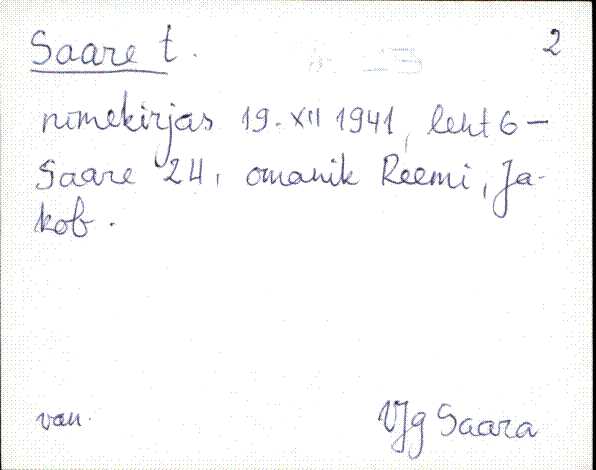 Saare t. 2
nimekirjas 19. XII 1941, leht 6 -
Saare 24, omanik Reemi, Ja-
kob.
van. VJg Saara